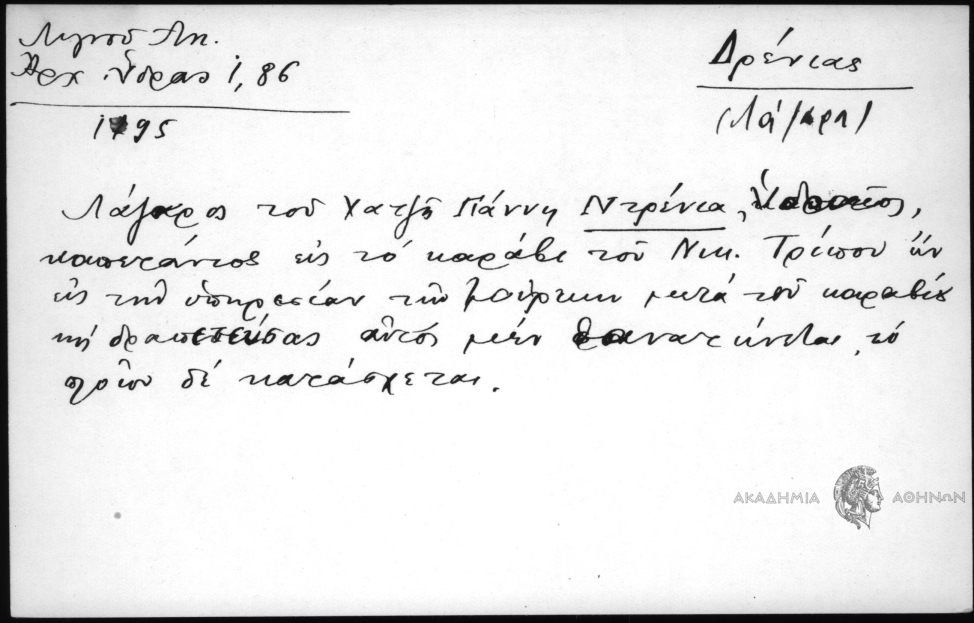 Λιγνού Αντ.
Ἀρχ. Ὕδρας 1, 86
1795
Δρένιας
(Λάζαρη)
Λάζαρος τοῦ Χατζῆ Γιάννη Ντρένια, Ὑδραῖος,
καπετάνιος εἰς τό καράβι τοῦ Νικ. Τρίπου ὤν
εἰς τήν ὑπηρεσίαν τῶν μετά τοῦ καραβίου
καί δραπετεύσας αὐτός μέν θανατώνεται, τό
πλοῖον δέ κατάσχεται.
ΑΚΑΔΗΜΙΑ ΑΘΗΝΩΝ